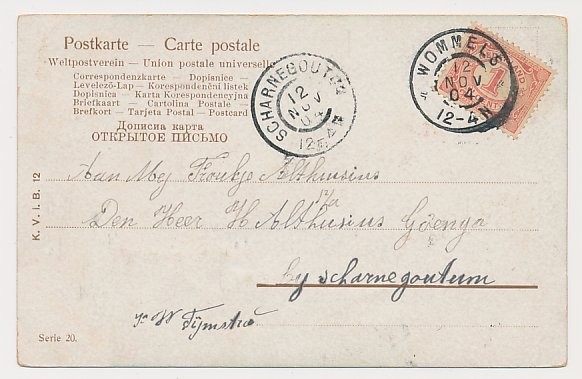 Postkarte — Carte postale
Weltpostverein — Union postale universelle
Correspondenzkarte — Dopisnice —
Levelező-Lap — Korespondenční listek
Dopisnica — Karta Korespondencyjna
Briefkaart — Cartolina Postale —
Brefkort — Tarjeta Postal — Postcard
Дописна карта
ОТКРЫТОЕ ПИСЬМО
SCHARNEGOUTUM
12
NOV
04
WOMMELS
12
NOV
04
12-4N
1
Aan Mej Froukje Althuisius
p/a
Den Heer H Althusius Goënga
by scharnegoutum
W Tijmstra
K. V. i. B. 12
Serie 20.